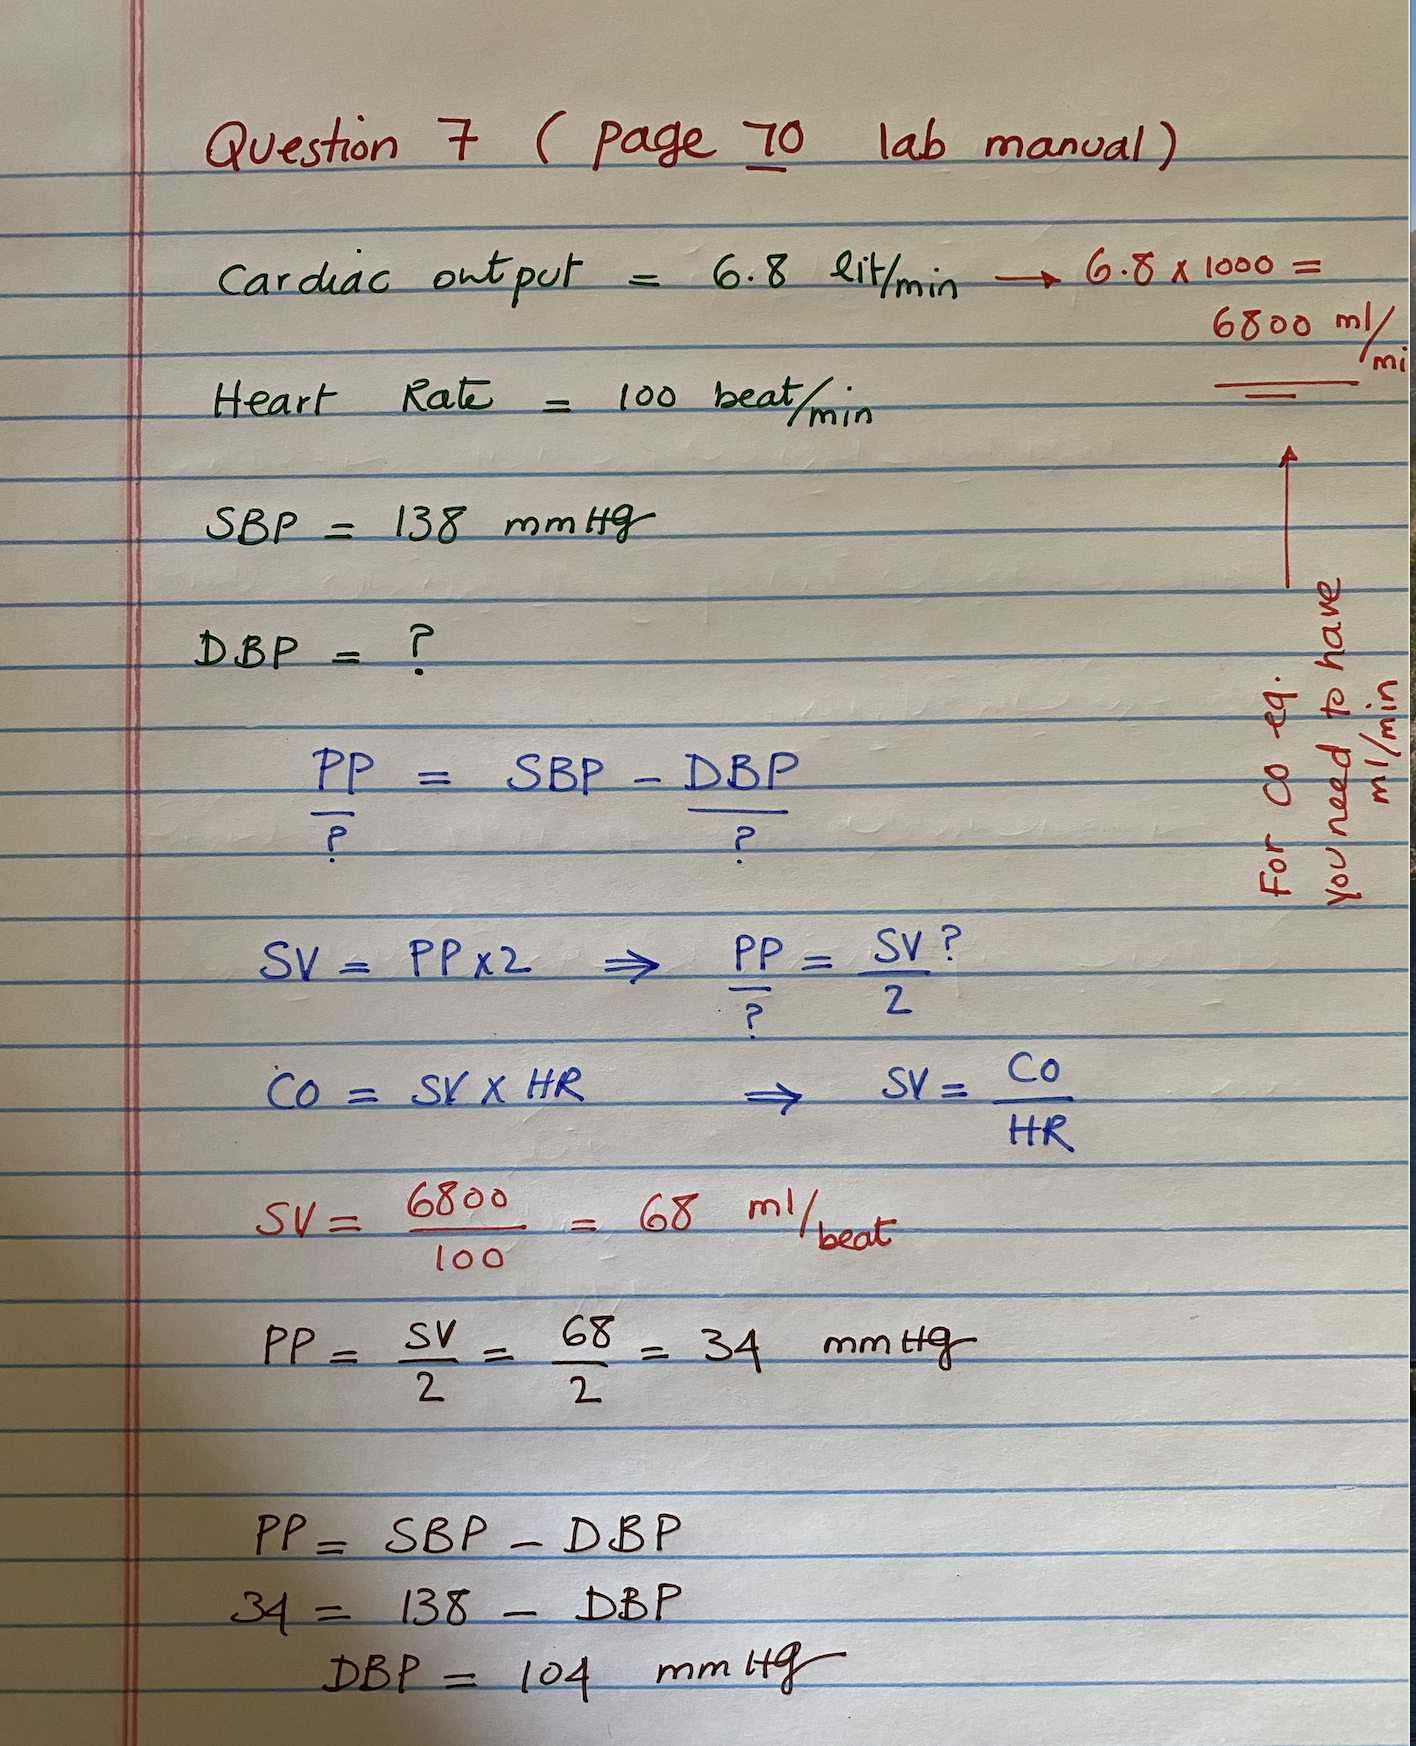 Question 7 ( page 70 lab manual)
Cardiac output = 6.8 lit/min → 6.8 x 1000 =
6800 ml/mi
Heart Rate = 100 beat/min
SBP = 138 mmHg
DBP = ?
For CO eq.
you need to have
ml/min
PP = SBP - DBP
? ?
SV = PP x 2 ⇒ PP = SV ?
? 2
CO = SV x HR ⇒ SV = CO
HR
SV = 6800 = 68 ml/beat
100
PP = SV = 68 = 34 mmHg
2 2
PP = SBP - DBP
34 = 138 - DBP
DBP = 104 mmHg